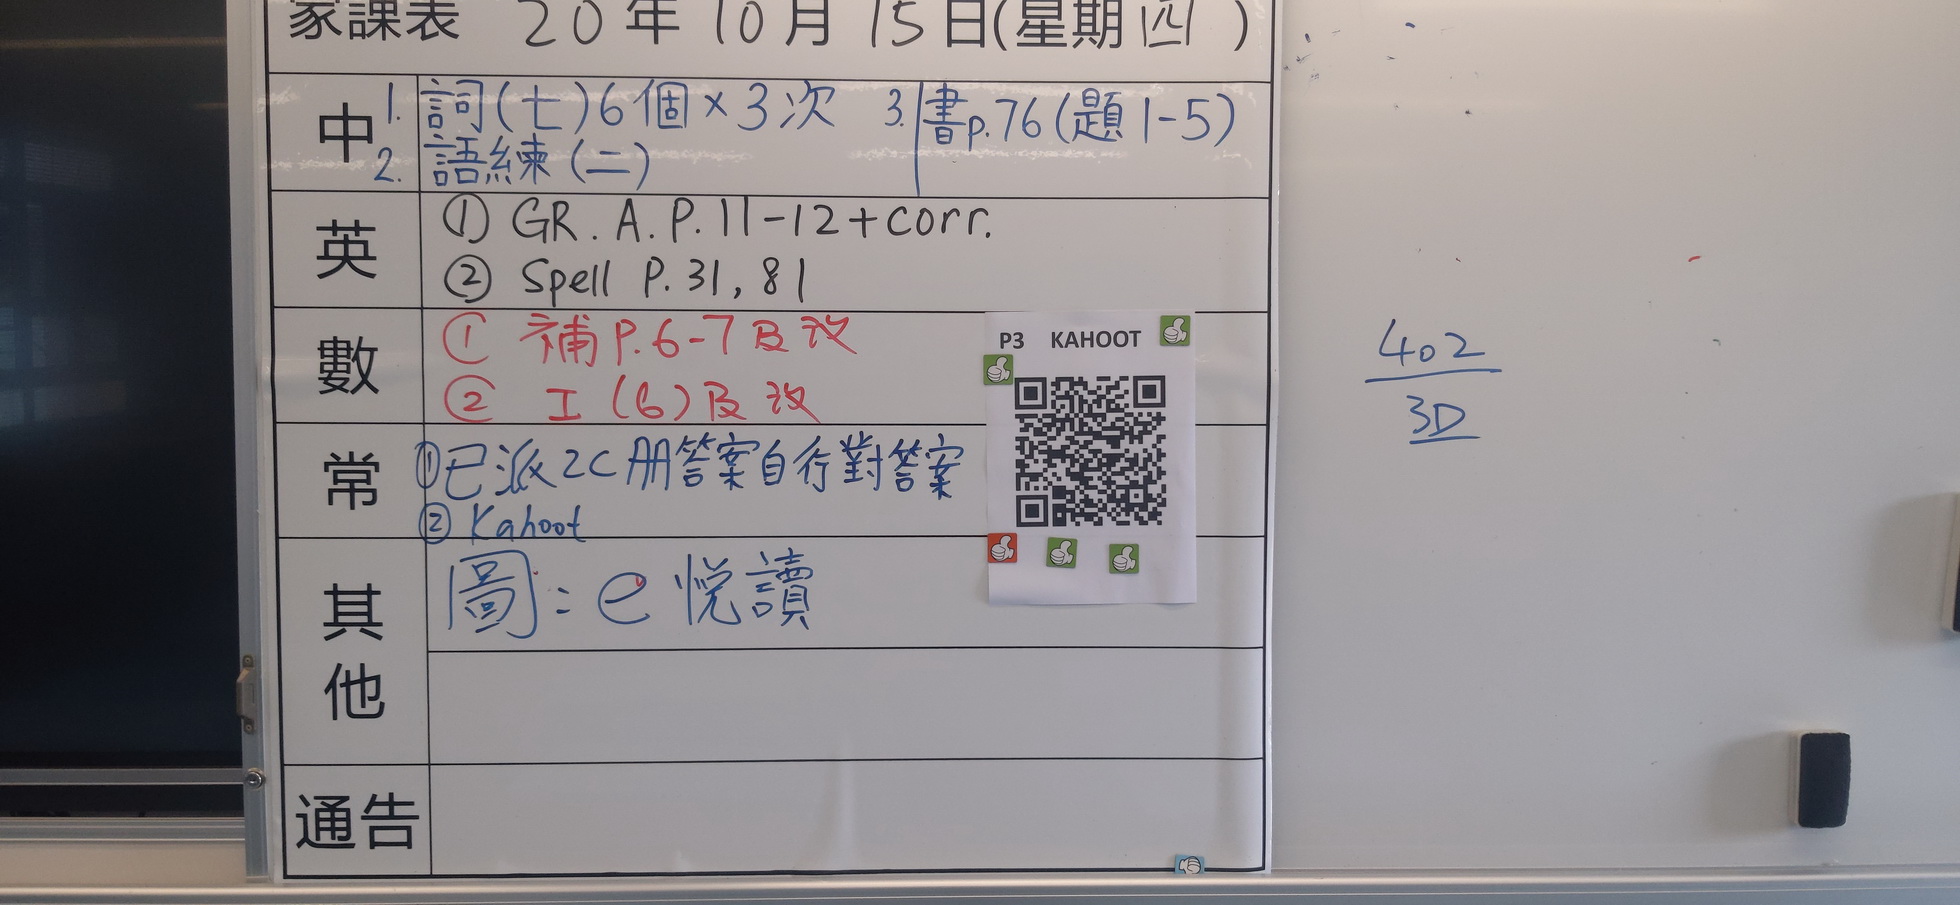 家課表 20年10月15日(星期四)
中
1. 詞(七)6個×3次
2. 語練(二)
3. 書p.76(題1-5)
英
① GR. A. P. 11-12+corr.
② Spell P. 31, 81
數
① 補P.6-7及改
② 工(6)及改
常
①已派2C冊答案自行對答案
② Kahoot
P3 KAHOOT
其他
圖:e悅讀
通告
402
3D